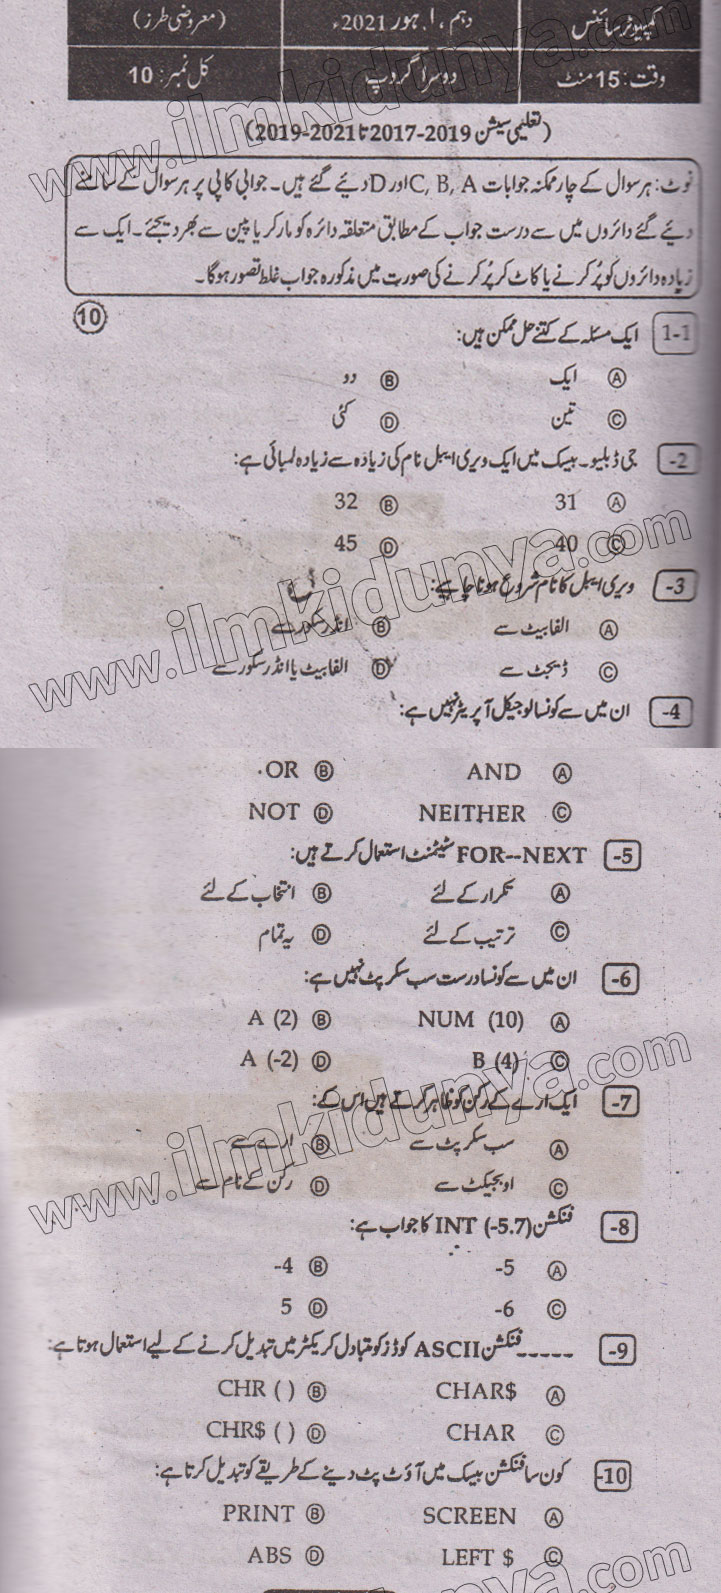 کمپیوٹر سائنس دہم ، لاہور 2021ء (معروضی طرز)
وقت: 15 منٹ دوسرا گروپ کل نمبر: 10
(تعلیمی سیشن 2019-2017 تا 2021-2019)
نوٹ: ہر سوال کے چار ممکنہ جوابات C, B, A اور D دئیے گئے ہیں۔ جوابی کاپی پر ہر سوال کے سامنے
دئیے گئے دائروں میں سے درست جواب کے مطابق متعلقہ دائرہ کو مارکر یا پین سے بھر دیجئے۔ ایک سے
زیادہ دائروں کو پُر کرنے یا کاٹ کر پُر کرنے کی صورت میں مذکورہ جواب غلط تصور ہوگا۔
10
1-1 ایک مسئلہ کے کتنے حل ممکن ہیں:
Ⓐ ایک Ⓑ دو
Ⓒ تین Ⓓ کئی
-2 جی ڈبلیو۔ بیسک میں ایک ویری ایبل نام کی زیادہ سے زیادہ لمبائی ہے:
Ⓐ 31 Ⓑ 32
Ⓒ 40 Ⓓ 45
-3 ویری ایبل کا نام شروع ہونا چاہیے:
Ⓐ الفابیٹ سے Ⓑ انڈر سکور سے
Ⓒ ڈیجٹ سے Ⓓ الفابیٹ یا انڈر سکور سے
-4 ان میں سے کونسا لوجیکل آپریٹر نہیں ہے:
Ⓐ AND Ⓑ OR
Ⓒ NEITHER Ⓓ NOT
-5 FOR--NEXT سٹیٹمنٹ استعمال کرتے ہیں:
Ⓐ تکرار کے لئے Ⓑ انتخاب کے لئے
Ⓒ ترتیب کے لئے Ⓓ یہ تمام
-6 ان میں سے کونسا درست سب سکرپٹ نہیں ہے:
Ⓐ NUM (10) Ⓑ A (2)
Ⓒ B (4) Ⓓ A (-2)
-7 ایک ارے کے رکن کو ظاہر کرتے ہیں اس کے:
Ⓐ سب سکرپٹ سے Ⓑ ارے سے
Ⓒ اوبجیکٹ سے Ⓓ رکن کے نام سے
-8 فنکشن INT (-5.7) کا جواب ہے:
Ⓐ -5 Ⓑ -4
Ⓒ -6 Ⓓ 5
-9 ----- فنکشن ASCII کوڈز کو متبادل کریکٹر میں تبدیل کرنے کے لیے استعمال ہوتا ہے:
Ⓐ CHAR$ Ⓑ CHR ( )
Ⓒ CHAR Ⓓ CHR$ ( )
-10 کون سا فنکشن بیسک میں آؤٹ پٹ دینے کے طریقے کو تبدیل کرتا ہے:
Ⓐ SCREEN Ⓑ PRINT
Ⓒ LEFT $ Ⓓ ABS
www.ilmkidunya.com
www.ilmkidunya.com
www.ilmkidunya.com
www.ilmkidunya.com